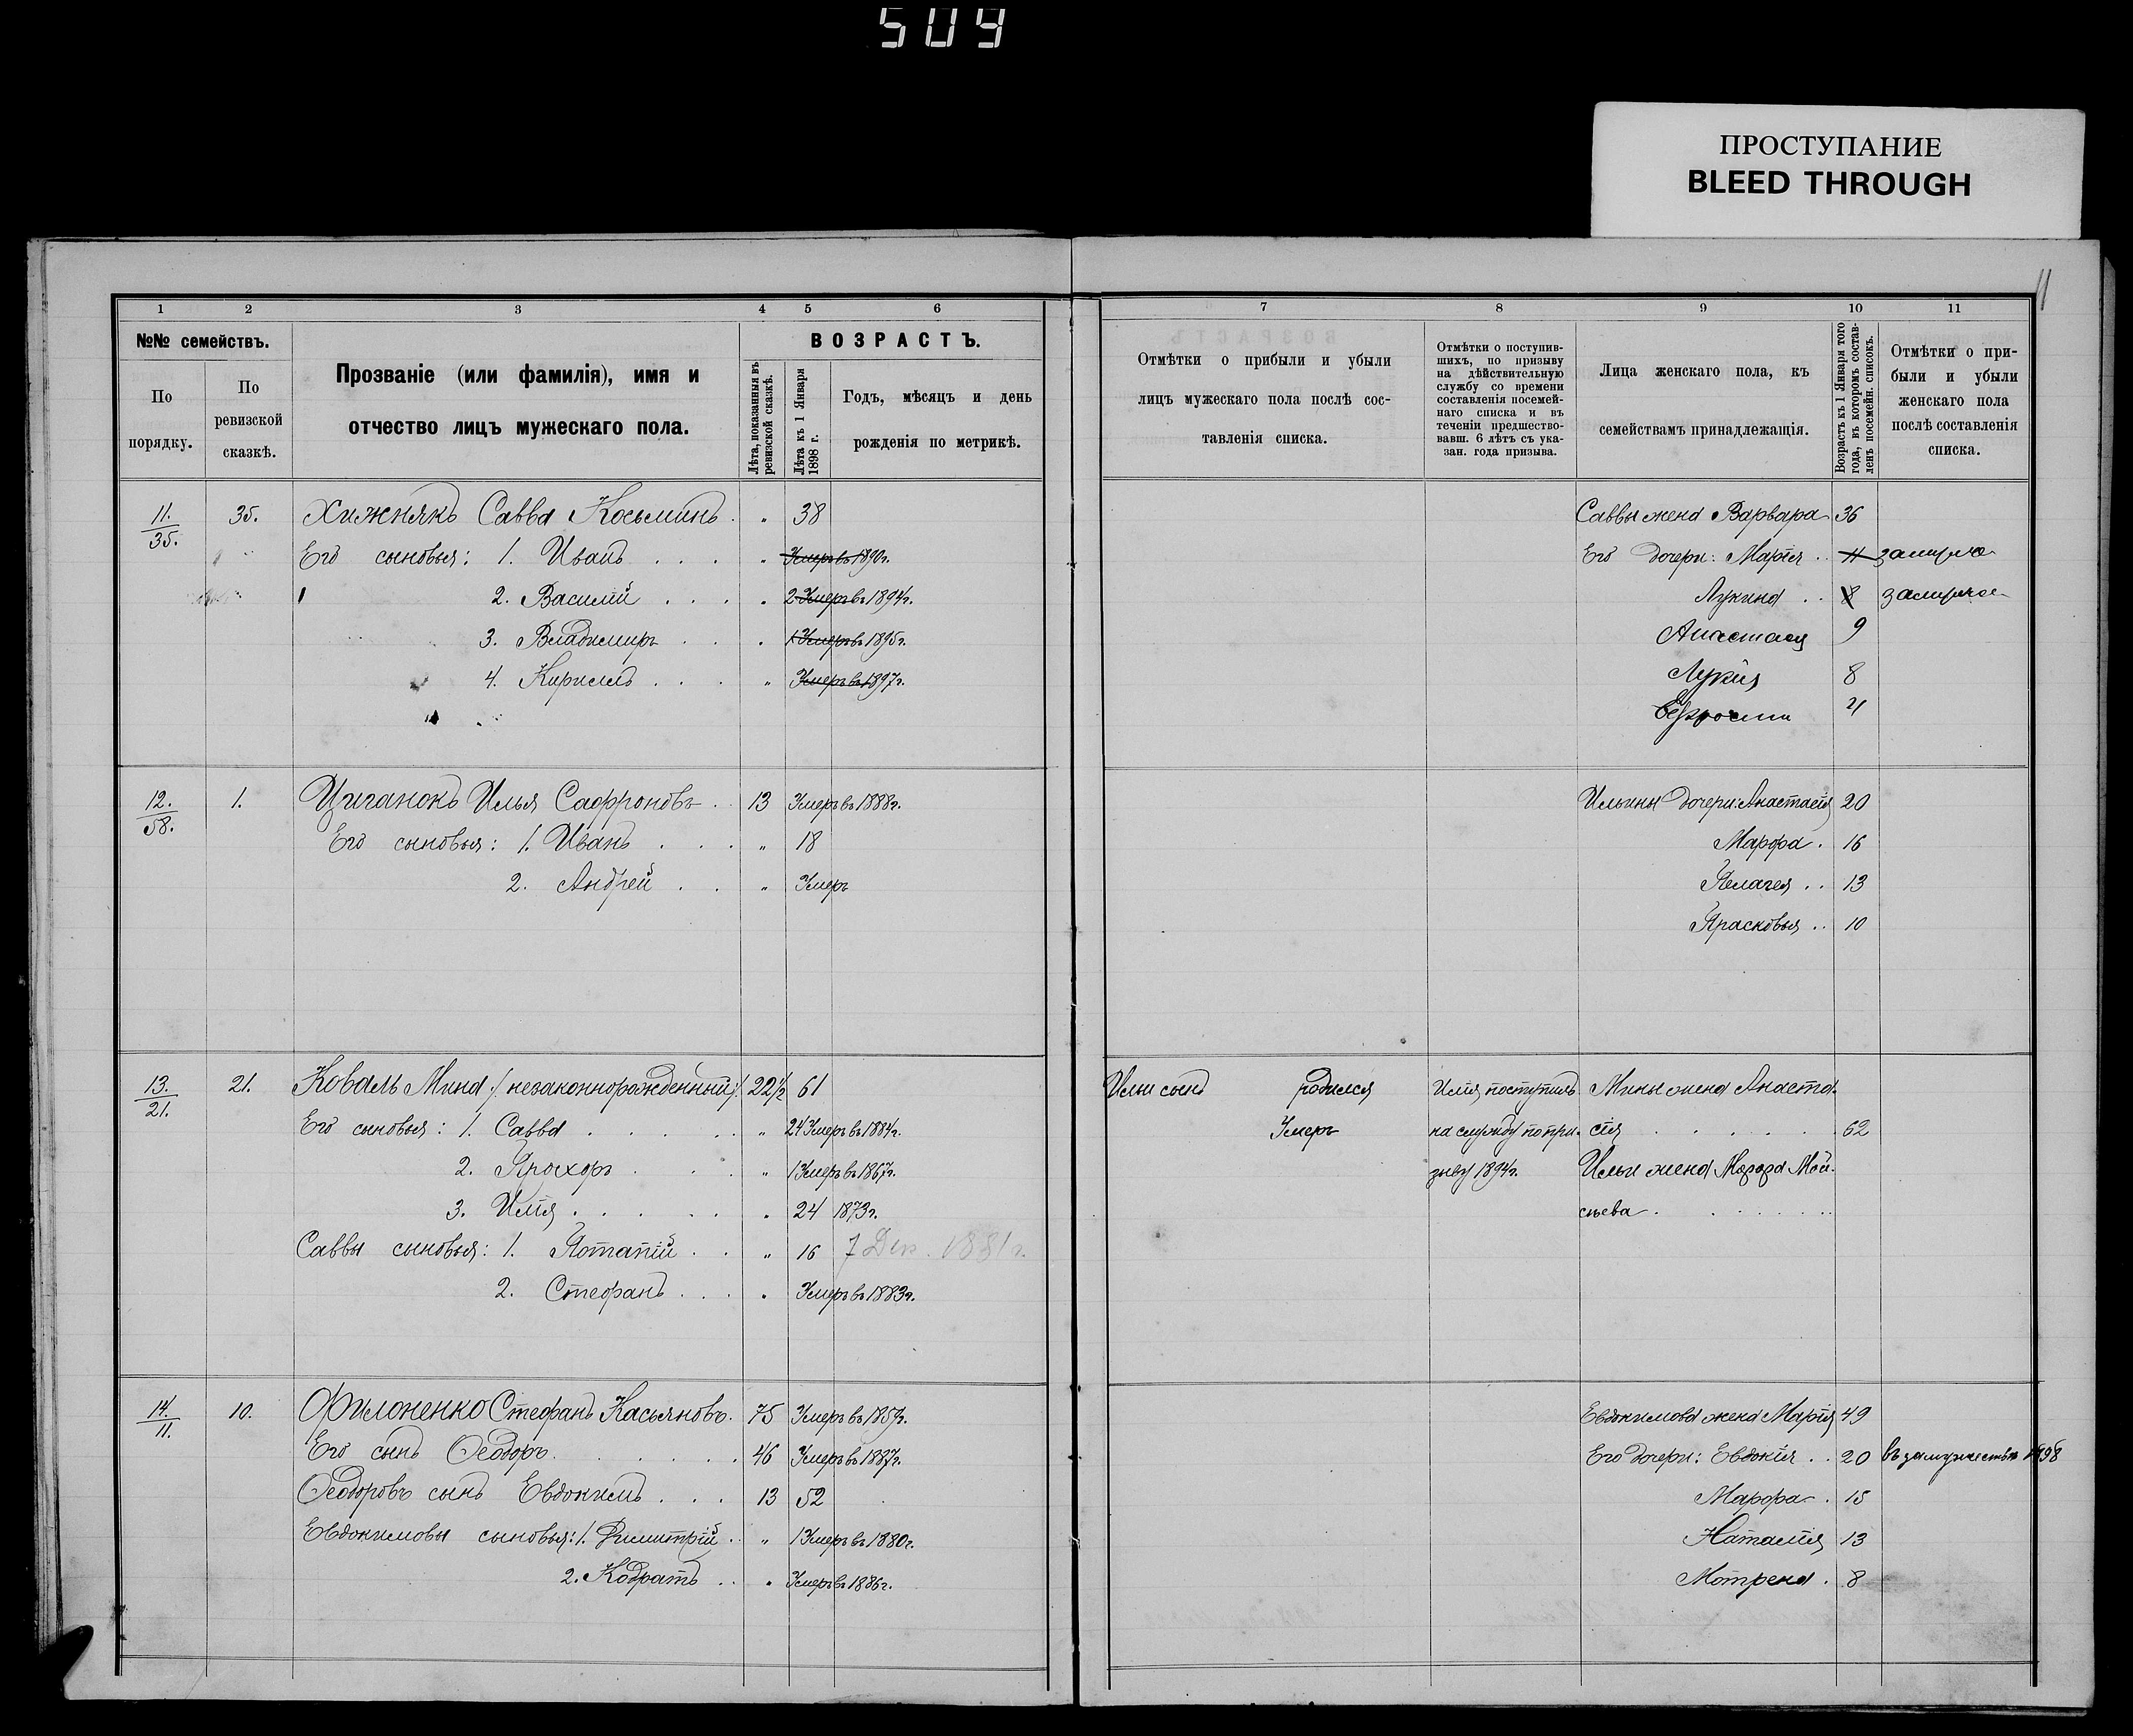 509
ПРОСТУПАНИЕ
BLEED THROUGH
11
1 2 3 4 5 6
№№ семействъ.
По порядку.
По ревизской сказкѣ.
Прозваніе (или фамилія), имя и
отчество лицъ мужескаго пола.
ВОЗРАСТЪ.
Лѣта, показанныя въ ревизской сказкѣ.
Лѣта къ 1 Января 1898 г.
Годъ, мѣсяцъ и день
рожденія по метрикѣ.
11. 35. 35. Хижнякъ Савва Косьминъ . „ 38
Его сыновья: 1. Иванъ . . . „ Умеръ въ 1890г.
2. Василій . . . „ 2 Умеръ въ 1894г.
3. Владимиръ . . „ 1 Умеръ въ 1895г.
4. Кириллъ . . . „ Умеръ въ 1897г.
12. 58. 1. Циганокъ Илья Сафроновъ . 13 Умеръ въ 1888г.
Его сыновья: 1. Иванъ . . . „ 18
2. Андрей . . „ Умеръ
13. 21. 21. Коваль Мина /незаконнорожденный/. 22½ 61
Его сыновья: 1. Савва . . . . . „ 24 Умеръ въ 1884г.
2. Прохоръ . . . „ 1 Умеръ въ 1867г.
3. Илія . . . . . „ 24 1873г.
Саввы сыновья: 1. Потапій . . „ 16 7 Дек. 1881г.
2. Стефанъ . . . „ Умеръ въ 1883г.
14. 11. 10. Филоненко Стефанъ Касьяновъ. 75 Умеръ въ 1857г.
Его сынъ Ѳеодоръ . . . . . . 46 Умеръ въ 1887г.
Ѳеодоровъ сынъ Евдокимъ . . . 13 52
Евдокимовы сыновья: 1. Димитрій . . „ 1 Умеръ въ 1880г.
2. Кодратъ . . „ Умеръ въ 1886г.
7 8 9 10 11
Отмѣтки о прибыли и убыли
лицъ мужескаго пола послѣ сос-
тавленія списка.
Отмѣтки о поступив-
шихъ, по призыву
на дѣйствительную
службу со времени
составленія посемей-
наго списка и въ
теченіи предшество-
вавш. 6 лѣтъ съ ука-
зан. года призыва.
Лица женскаго пола, къ
семействамъ принадлежащія.
Возрастъ къ 1 Января того
года, въ которомъ состав-
ленъ посемейн. списокъ.
Отмѣтки о при-
были и убыли
женскаго пола
послѣ составленія
списка.
Саввы жена Варвара 36
Его дочери: Марія . . 11
Лукина . . 8
Анастасія 9
Лукія 8
4
Ильины дочери: Анастасія 20
Марфа . 16
Пелагея . . 13
Прасковья . . 10
Ильи сынъ родился Илія поступилъ Мины жена Анаста-
Умеръ на службу по при- сія . . . . . . 62
зыву 1894г. Ильи жена Марфа Мои-
сѣева . . . . . . .
Евдокимова жена Марія 49
Его дочери: Евдокія . . 20 въ замужествѣ 1898
Марфа . 15
Наталія 13
Мотрена . 8